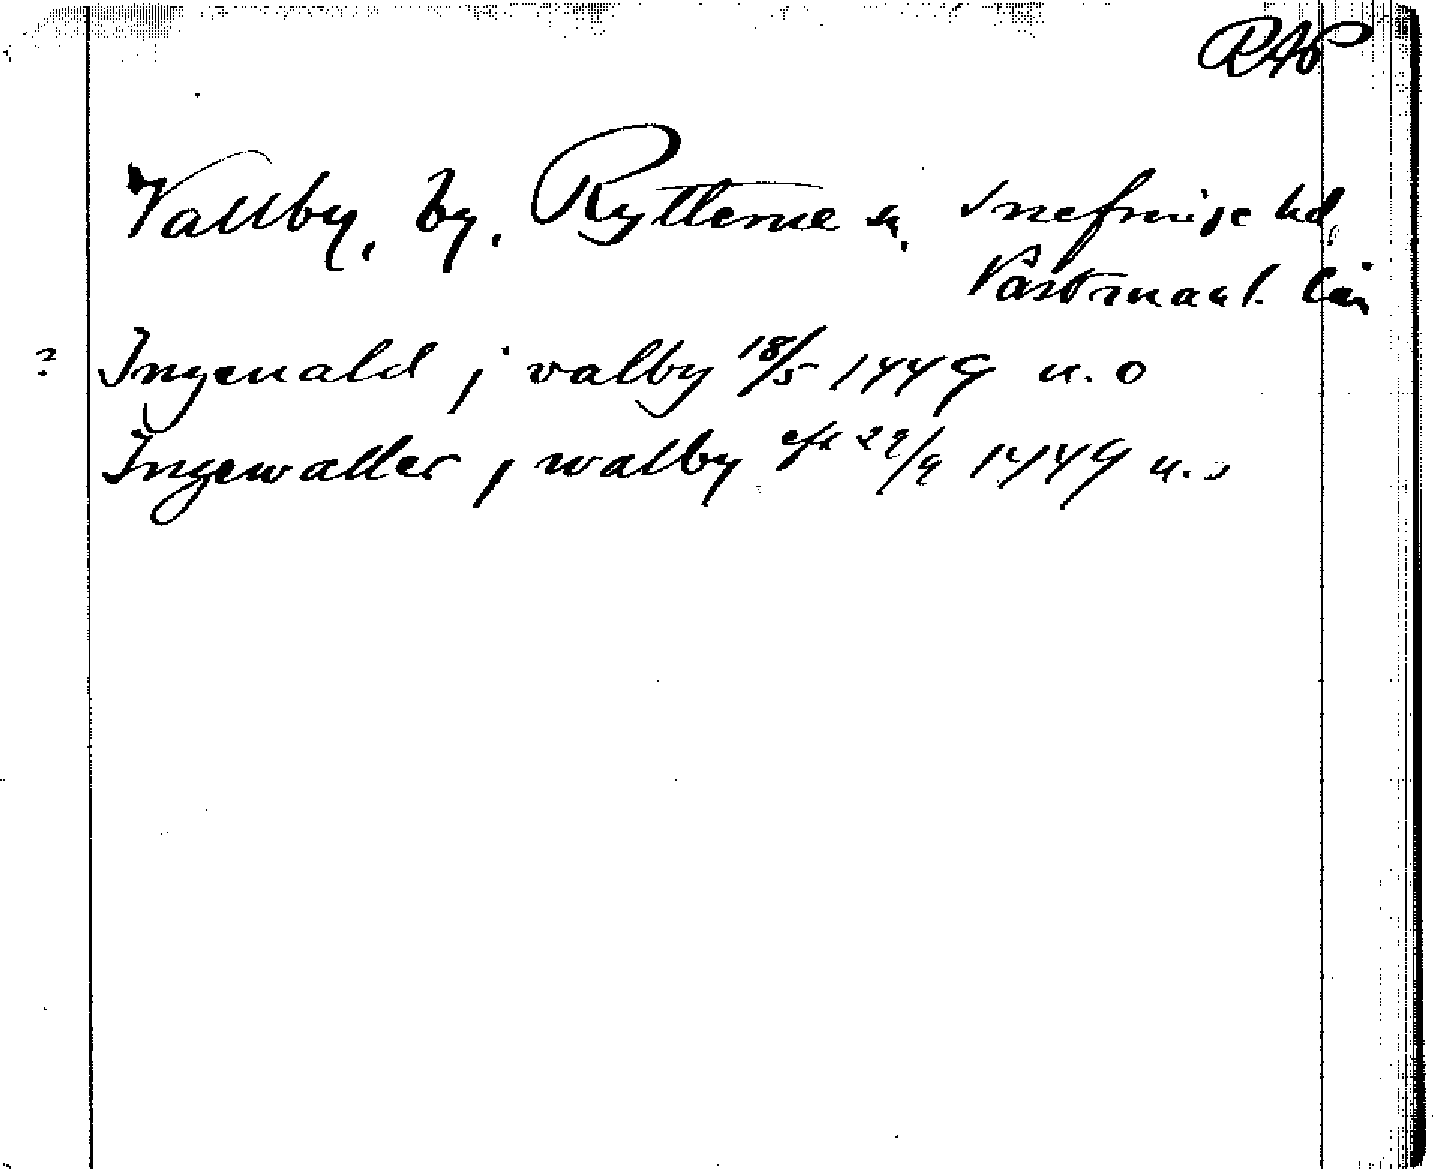 RAP
Vallby, by, Rytterne sn, Snefringe hd,
Västmanl. län
? Ingeuald j valby 18/5 1449 u. o
Ingewalter j walby eft 29/9 1449 u. o